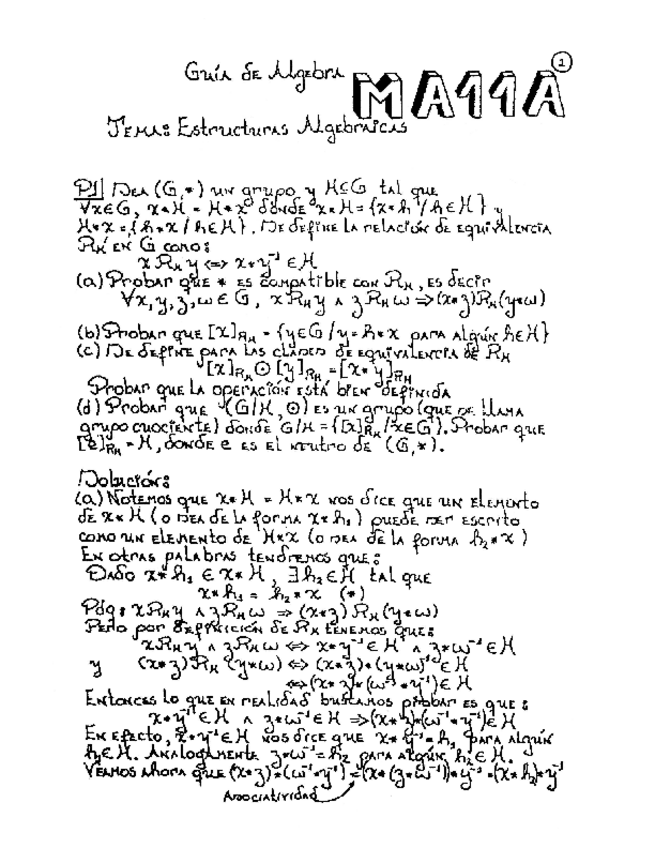 Guía de Algebra MA11A 1
Temas: Estructuras Algebraicas
P1| Sea (G,*) un grupo y H⊆G tal que
∀x∈G, x*H = H*x donde x*H = {x*h / h∈H} y
H*x = {h*x / h∈H}. Se define la relación de equivalencia
R_H en G como:
x R_H y ⇔ x*y⁻¹ ∈ H
(a) Probar que * es compatible con R_H, es decir
∀x,y,z,ω ∈ G, x R_H y ∧ z R_H ω ⇒ (x*z) R_H (y*ω)
(b) Probar que [x]_R_H = {y∈G / y = h*x para algún h∈H}
(c) Se define para las clases de equivalencia de R_H
[x]_R_H ⊙ [y]_R_H = [x*y]_R_H
Probar que la operación está bien definida
(d) Probar que (G/H, ⊙) es un grupo (que se llama
grupo cuociente) donde G/H = {[x]_R_H / x∈G}. Probar que
[e]_R_H = H, donde e es el neutro de (G,*).
Solución:
(a) Notemos que x*H = H*x nos dice que un elemento
de x*H (o sea de la forma x*h₁) puede ser escrito
como un elemento de H*x (o sea de la forma h₂*x)
En otras palabras tendremos que:
Dado x*h₁ ∈ x*H, ∃h₂∈H tal que
x*h₁ = h₂*x (*)
Pdq: x R_H y ∧ z R_H ω ⇒ (x*z) R_H (y*ω)
Pero por definición de R_H tenemos que:
x R_H y ∧ z R_H ω ⇔ x*y⁻¹ ∈ H ∧ z*ω⁻¹ ∈ H
y (x*z) R_H (y*ω) ⇔ (x*z)*(y*ω)⁻¹ ∈ H
⇔ (x*z)*(ω⁻¹*y⁻¹) ∈ H
Entonces lo que en realidad buscamos probar es que:
x*y⁻¹ ∈ H ∧ z*ω⁻¹ ∈ H ⇒ (x*z)*(ω⁻¹*y⁻¹) ∈ H
En efecto, x*y⁻¹ ∈ H nos dice que x*y⁻¹ = h₁ para algún
h₁∈H. Analogamente z*ω⁻¹ = h₂ para algún h₂∈H.
Veamos ahora que (x*z)*(ω⁻¹*y⁻¹) = (x*(z*ω⁻¹))*y⁻¹ = (x*h₂)*y⁻¹
Asociatividad